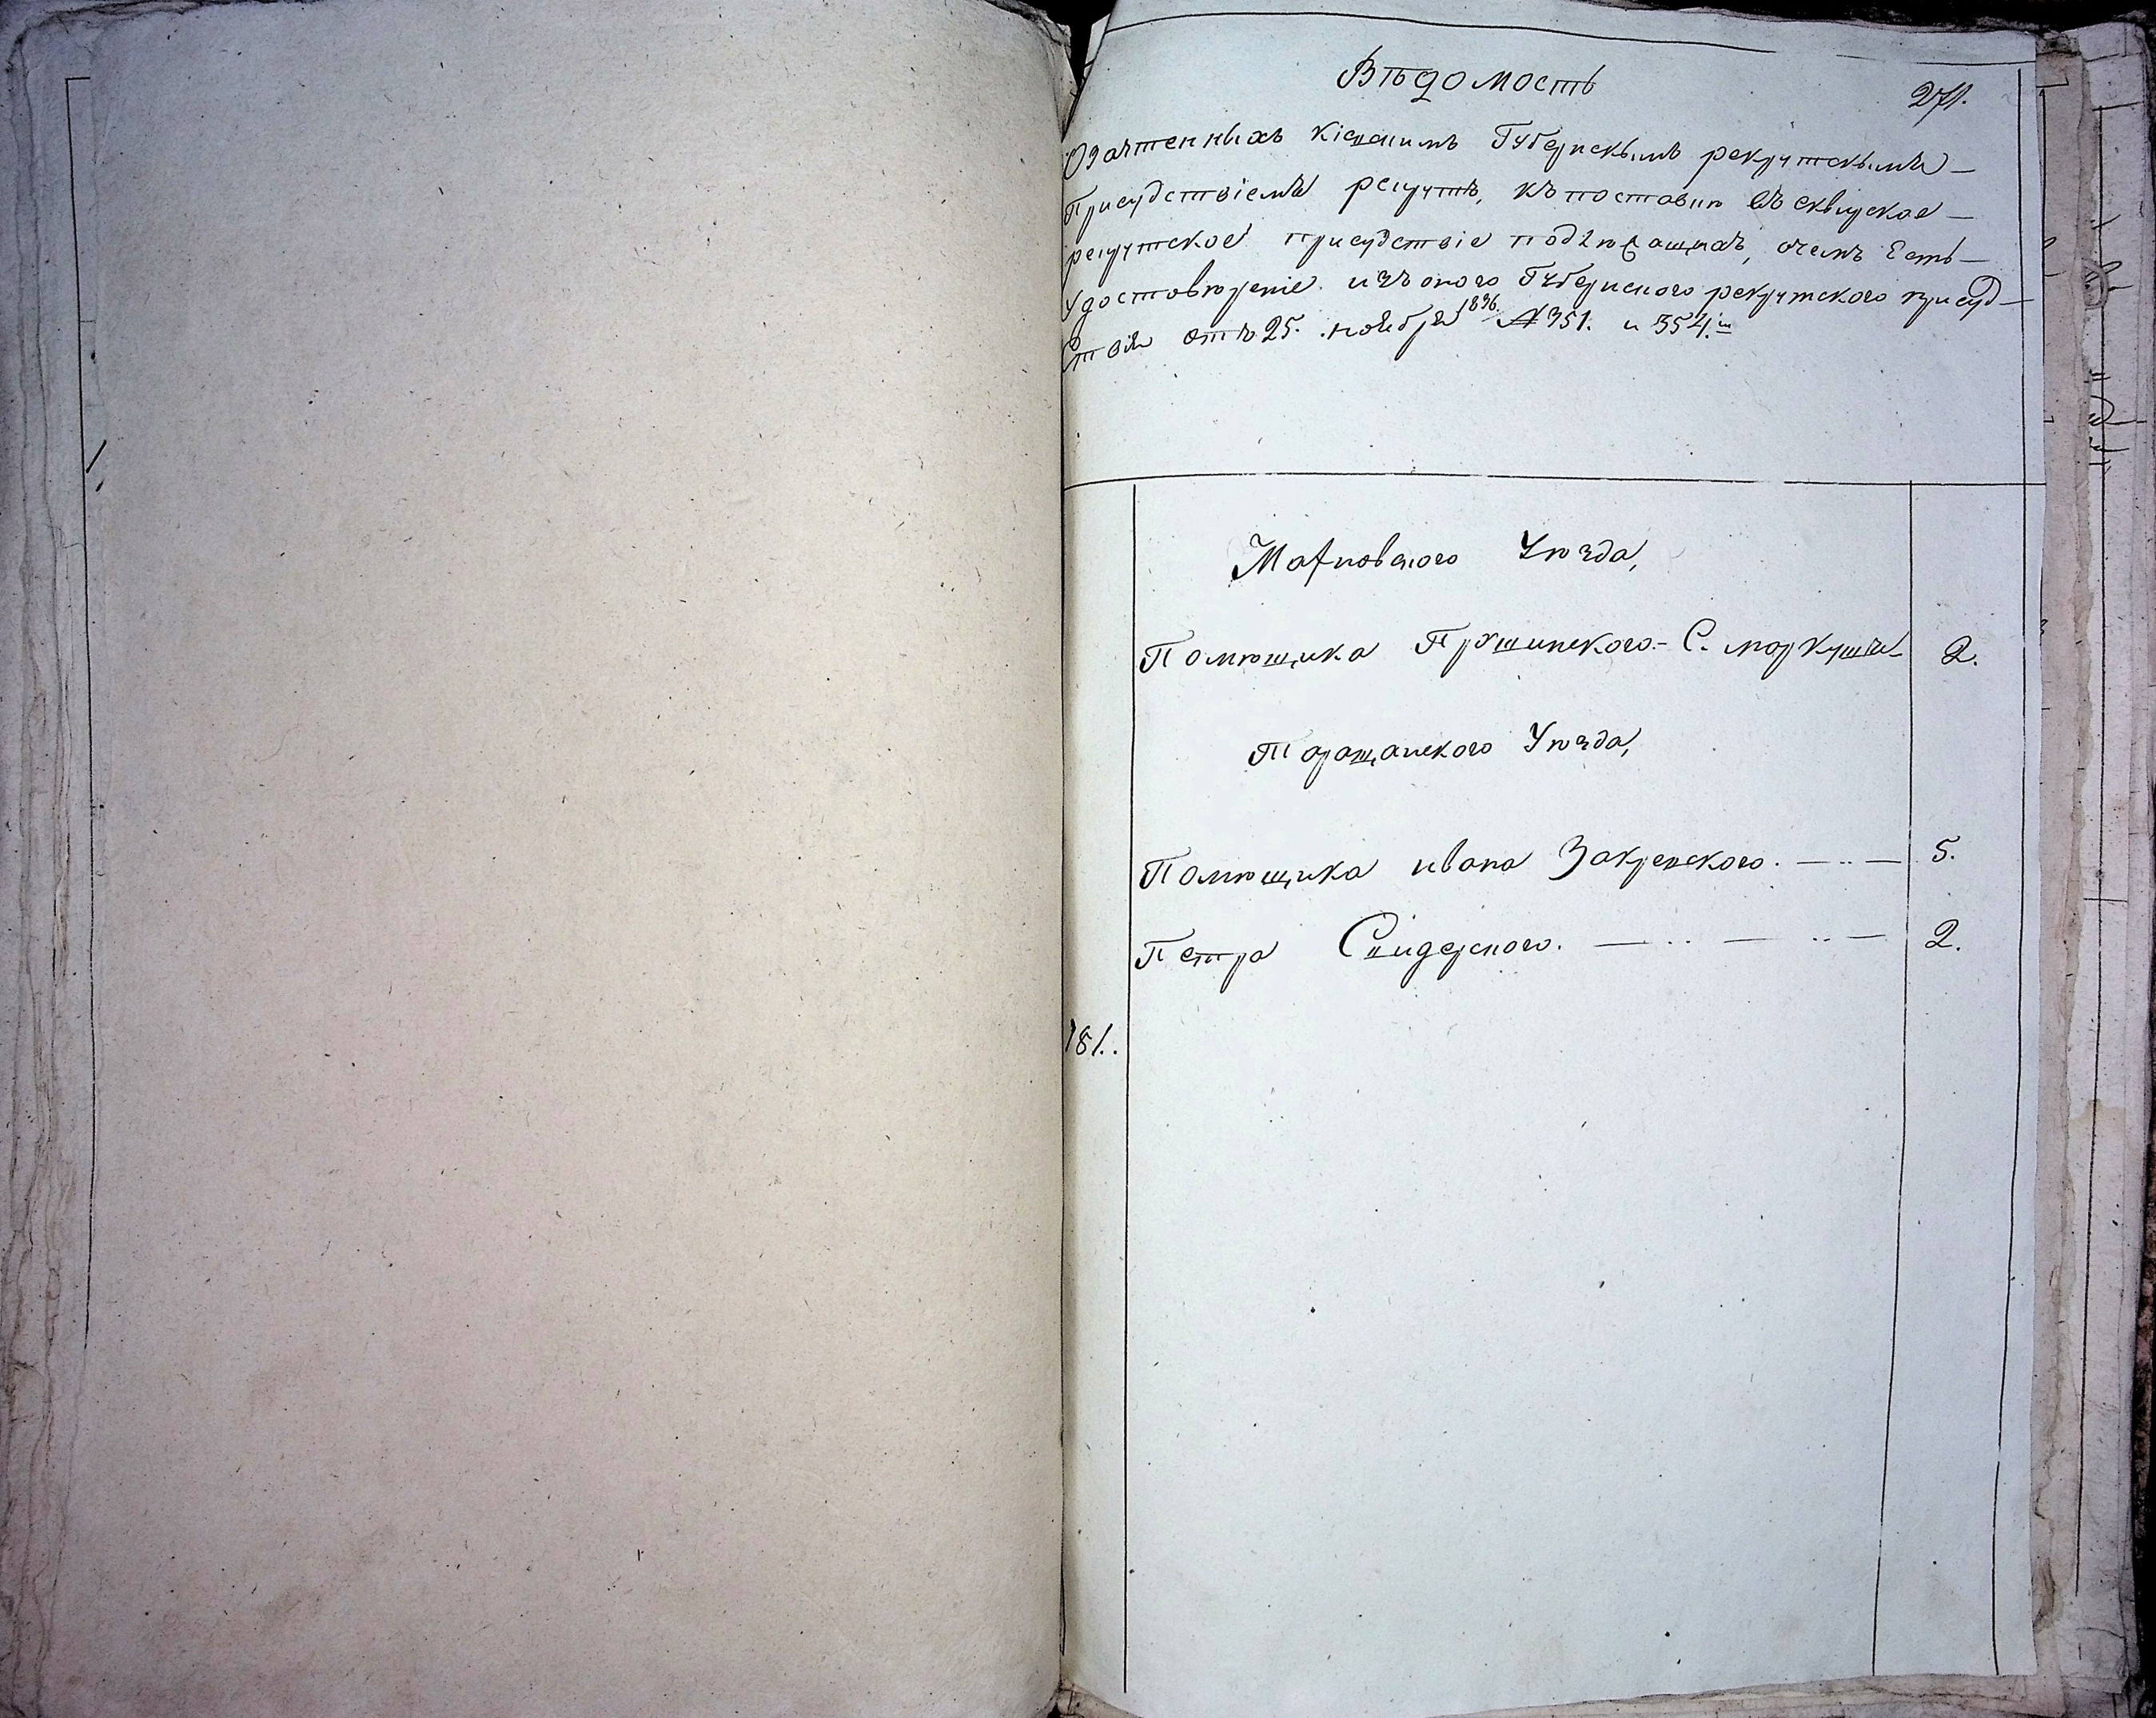 Вѣдомость
271.
Озачтенныхъ кіевскимъ Губернскымъ рекрутскымъ
Присудствіемъ рекрутъ, къ поставкѣ въ сквирское
рекрутское присудствіе подлѣжащихъ, очемъ Есть
Удостовѣреніе изъ оного Губернского рекрутского присуд
ствія отъ 25. ноября 1836. № 351. и 354.
Махновского Уѣзда,
Помѣщика Прушинского - С. маркушы 2.
Таращанского Уѣзда,
Помѣщика ивана Закревского. 5.
Петра Свидерского. 2.
181.